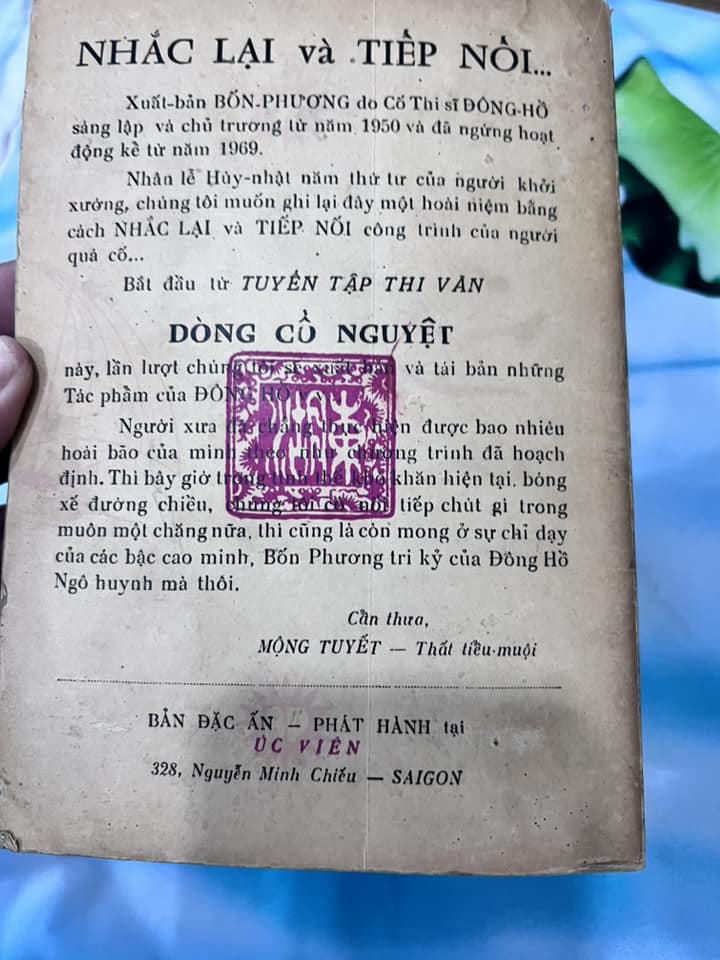 NHẮC LẠI và TIẾP NỐI...
Xuất-bản BỐN-PHƯƠNG do Cố Thi sĩ ĐÔNG-HỒ
sáng lập và chủ trương từ năm 1950 và đã ngừng hoạt
động kể từ năm 1969.
Nhân lễ Húy-nhật năm thứ tư của người khởi
xướng, chúng tôi muốn ghi lại đây một hoài niệm bằng
cách NHẮC LẠI và TIẾP NỐI công trình của người
quá cố...
Bắt đầu từ TUYỂN TẬP THI VĂN
DÒNG CỔ NGUYỆT
này, lần lượt chúng tôi sẽ xuất bản và tái bản những
Tác phẩm của ĐÔNG HỒ
Người xưa đã chẳng thực hiện được bao nhiêu
hoài bão của mình theo như chương trình đã hoạch
định. Thì bây giờ trong tình thế khó khăn hiện tại, bóng
xế đường chiều, chúng tôi có nối tiếp chút gì trong
muôn một chăng nữa, thì cũng là còn mong ở sự chỉ dạy
của các bậc cao minh, Bốn Phương tri kỷ của Đông Hồ
Ngô huynh mà thôi.
Cẩn thưa,
MỘNG TUYẾT — Thất tiểu-muội
BẢN ĐẶC ẤN — PHÁT HÀNH tại
ÚC VIÊN
328, Nguyễn Minh Chiếu — SAIGON